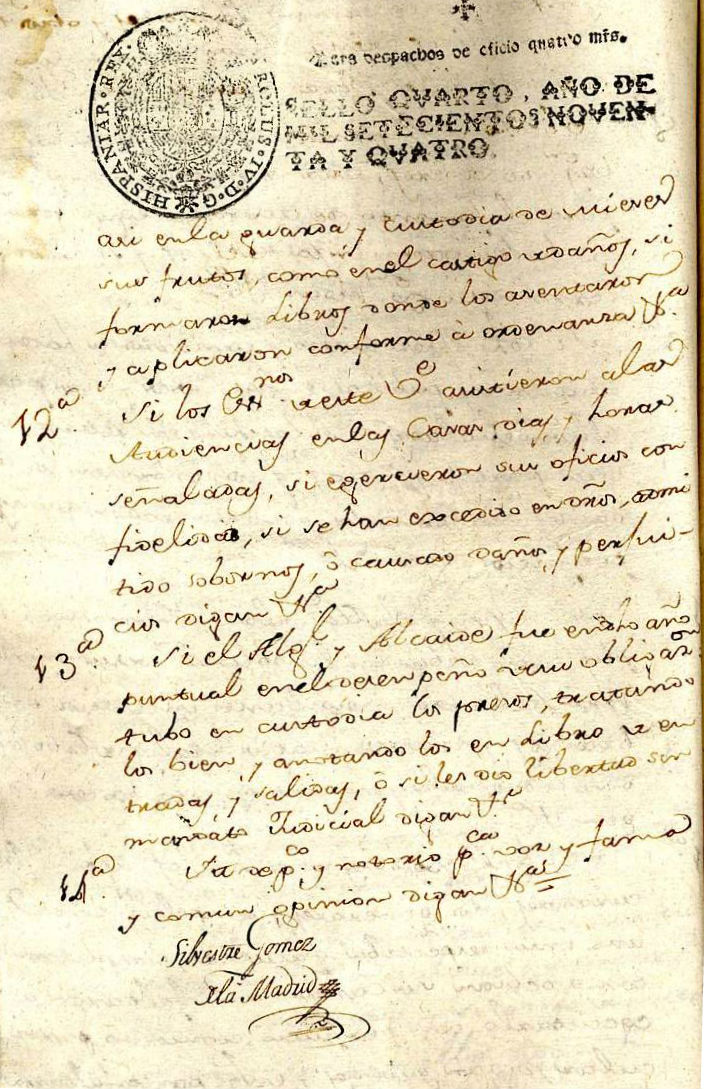 HISPANIAR. REX. CAROLUS. IV. D. G.
Para despachos de oficio quatro mrs.
SELLO QVARTO, AÑO DE
MIL SETECIENTOS NOVEN-
TA Y QVATRO.
asi en la guarda y custodia de mieses
sus frutos, como en el castigo de daños, si
formaron Libros donde los asentaron
y aplicaron conforme à ordenanza
12ª Si los Essnos de este asistieron alas
Audiencias en las Casas dias, y horas
señaladas, si egercieron sus oficios con
fidelidad, si se han excedido en dros, admi
tido sobornos, ò causado daños, y perjui-
cios digan
13ª Si el Algl. y Alcaide fue en dho año
puntual en el desempeño de su obligazon
tubo en custodia los presos, tratando
los bien, y anotando los en Libro de en
tradas, y salidas, ò si les dio libertad sin
mandato Judicial digan
14ª Si de pco. y notorio pca. voz y fama
y comun opinion digan
Silvestre Gomez
Madrid